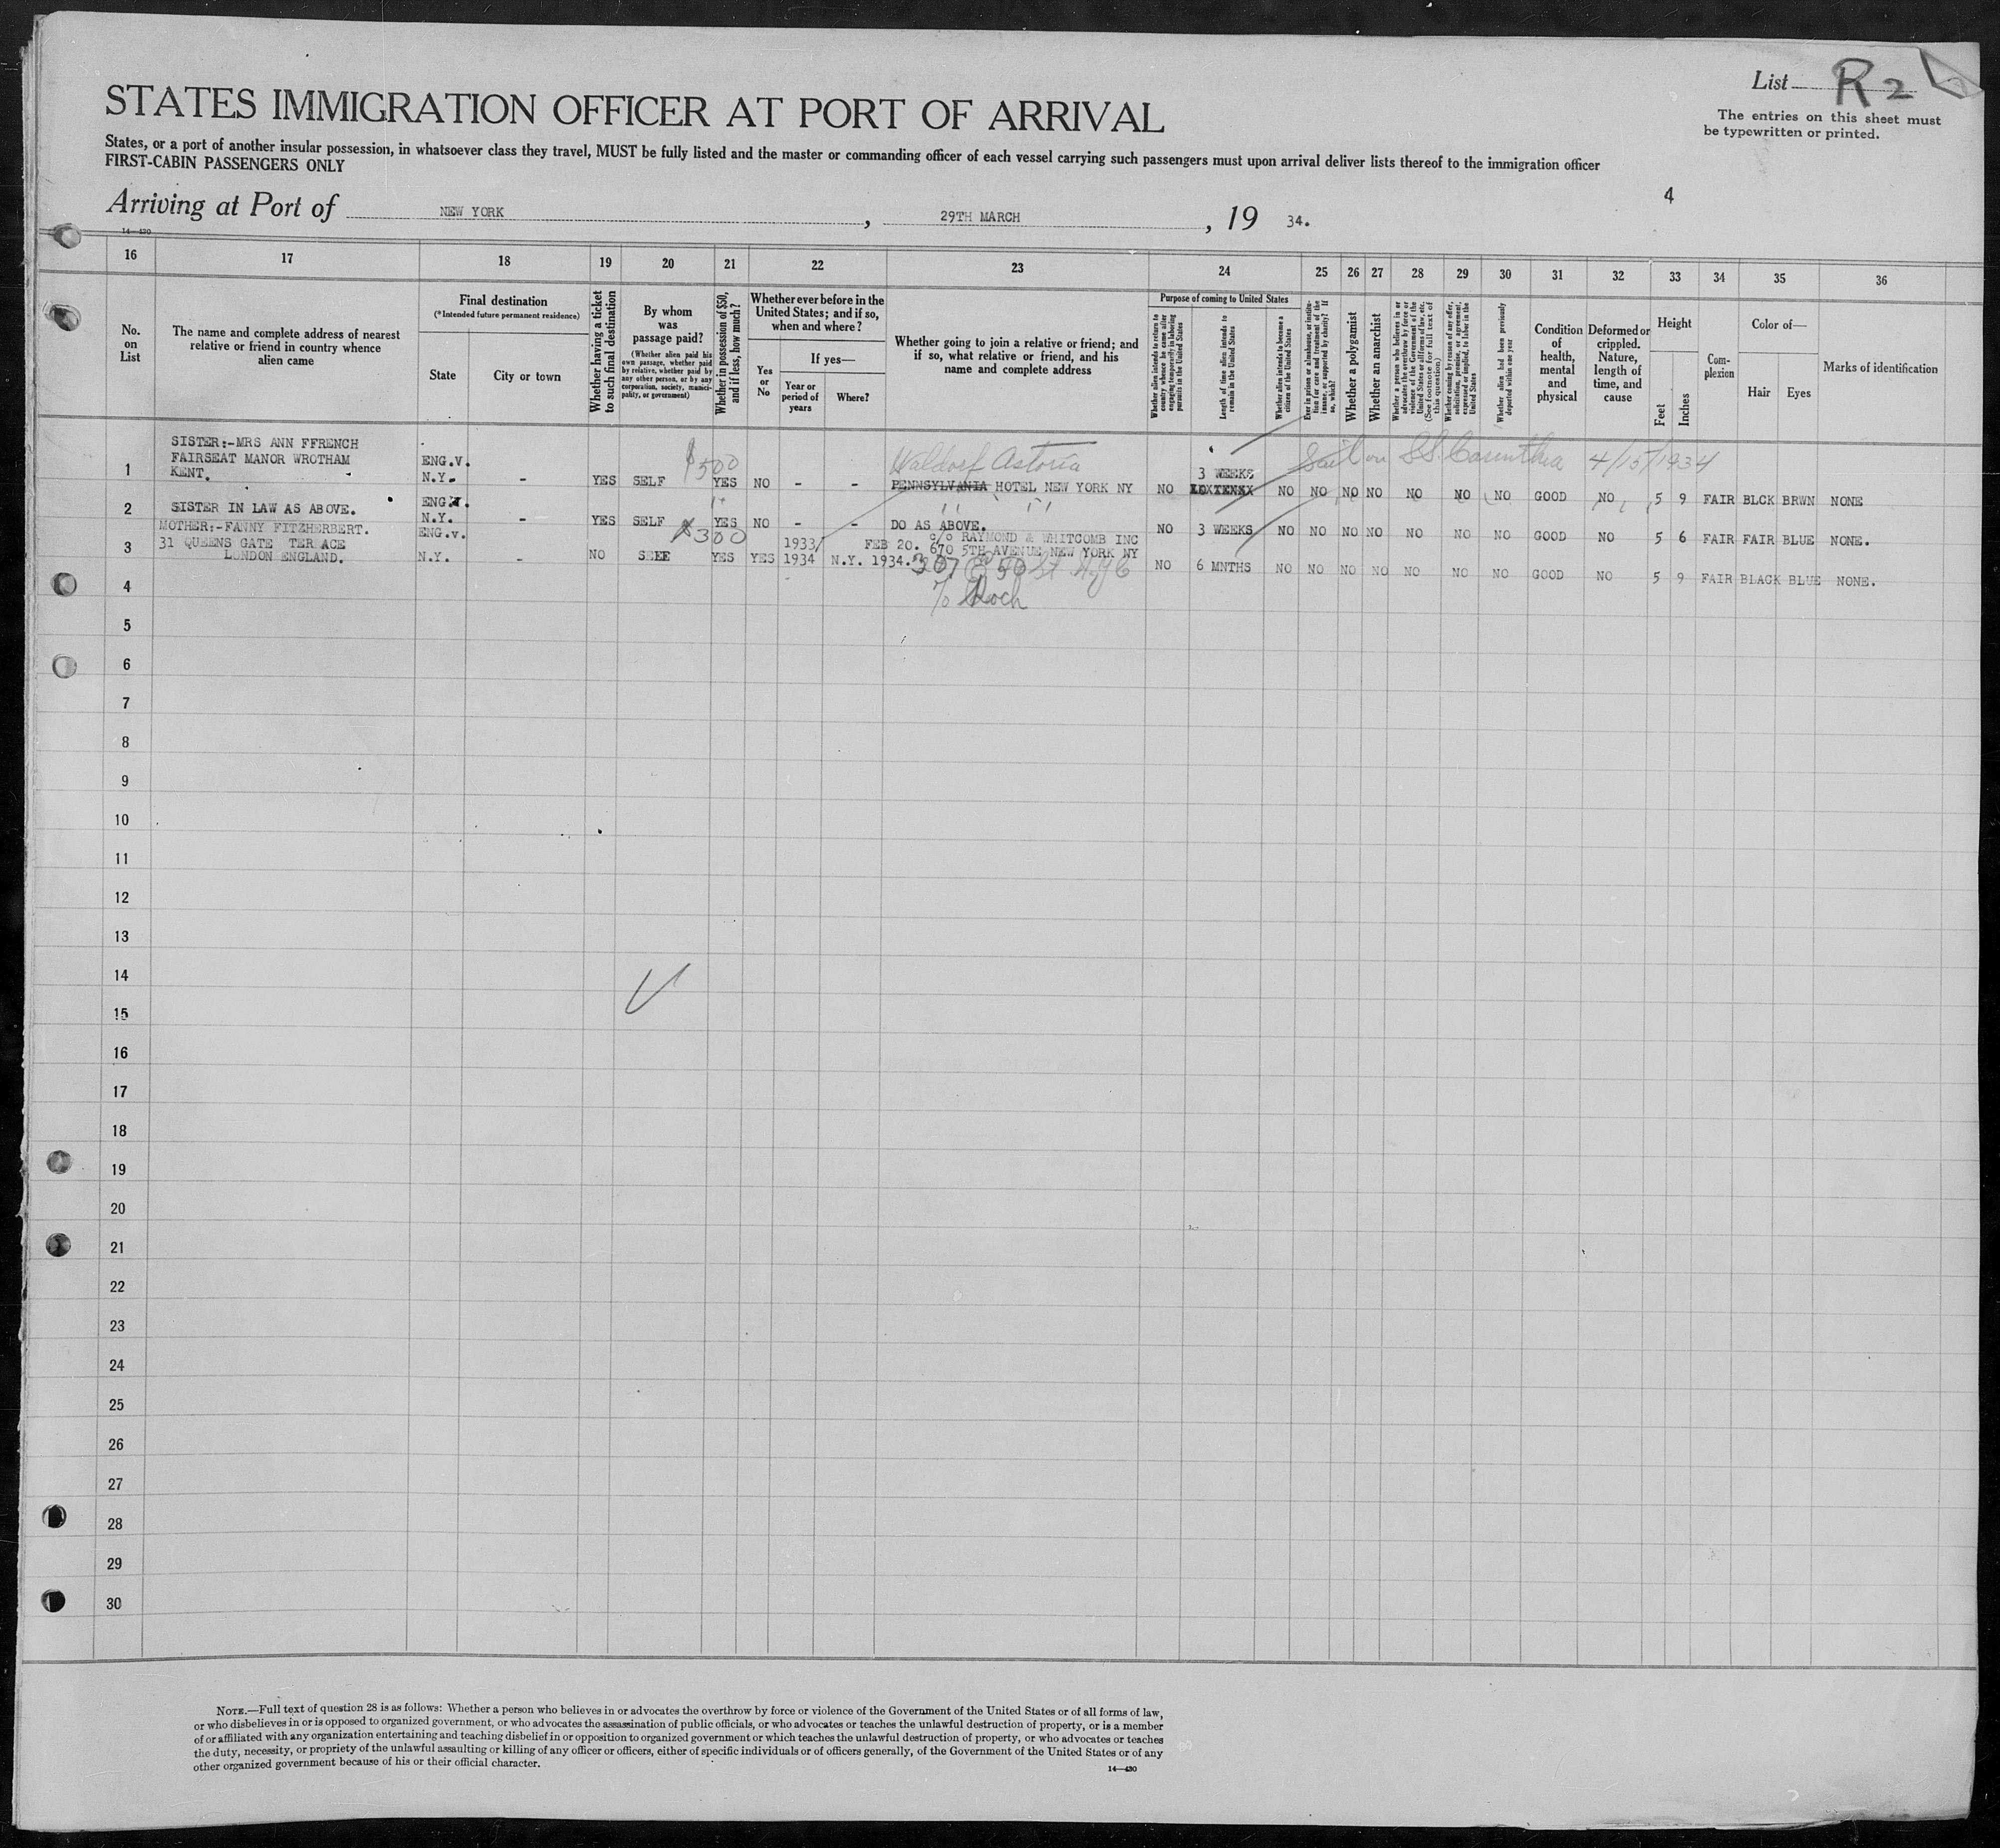 List R 2
The entries on this sheet must
be typewritten or printed.
STATES IMMIGRATION OFFICER AT PORT OF ARRIVAL
States, or a port of another insular possession, in whatsoever class they travel, MUST be fully listed and the master or commanding officer of each vessel carrying such passengers must upon arrival deliver lists thereof to the immigration officer
FIRST-CABIN PASSENGERS ONLY
4
Arriving at Port of NEW YORK, 29TH MARCH, 19 34.
14—430
16 17 18 19 20 21 22 23 24 25 26 27 28 29 30 31 32 33 34 35 36
No. on List
The name and complete address of nearest relative or friend in country whence alien came
Final destination
(*Intended future permanent residence)
State
City or town
Whether having a ticket to such final destination
By whom was passage paid?
(Whether alien paid his own passage, whether paid by relative, whether paid by any other person, or by any corporation, society, municipality, or government)
Whether in possession of $50, and if less, how much?
Whether ever before in the United States; and if so, when and where?
Yes or No
If yes—
Year or period of years
Where?
Whether going to join a relative or friend; and if so, what relative or friend, and his name and complete address
Purpose of coming to United States
Whether alien intends to return to country whence he came after engaging temporarily in laboring pursuits in the United States
Length of time alien intends to remain in the United States
Whether alien intends to become a citizen of the United States
Ever in prison or almshouse, or institution for care and treatment of the insane, or supported by charity? If so, which?
Whether a polygamist
Whether an anarchist
Whether a person who believes in or advocates the overthrow by force or violence of the Government of the United States or all forms of law, etc. (See footnote for full text of this question)
Whether coming by reason of any offer, solicitation, promise, or agreement, expressed or implied, to labor in the United States
Whether alien had been previously deported within one year
Condition of health, mental and physical
Deformed or crippled. Nature, length of time, and cause
Height
Feet
Inches
Complexion
Color of—
Hair
Eyes
Marks of identification
SISTER:-MRS ANN FFRENCH
FAIRSEAT MANOR WROTHAM ENG.V. $500 Waldorf Astoria Sail on SS. Carinthia 4/15/1934
1 KENT. N.Y. - YES SELF YES NO - - PENNSYLVANIA HOTEL NEW YORK NY NO 3 WEEKS NO NO NO NO NO NO NO GOOD NO 5 9 FAIR BLCK BRWN NONE
2 SISTER IN LAW AS ABOVE. N.Y. - YES SELF YES NO - - DO AS ABOVE. NO 3 WEEKS NO NO NO NO NO NO NO GOOD NO 5 6 FAIR FAIR BLUE NONE.
MOTHER:-FANNY FITZHERBERT. ENG.V. $300
3 31 QUEENS GATE TERRACE 1933 FEB 20. c/o RAYMOND & WHITCOMB INC
670 5TH AVENUE NEW YORK NY
LONDON ENGLAND. N.Y. - NO SELF YES YES 1934 N.Y. 1934. NO 6 MNTHS NO NO NO NO NO NO NO GOOD NO 5 9 FAIR BLACK BLUE NONE.
307 E 50 St NYC
4 % Koch
5
6
7
8
9
10
11
12
13
14
15
16
17
18
19
20
21
22
23
24
25
26
27
28
29
30
NOTE.—Full text of question 28 is as follows: Whether a person who believes in or advocates the overthrow by force or violence of the Government of the United States or of all forms of law,
or who disbelieves in or is opposed to organized government, or who advocates the assassination of public officials, or who advocates or teaches the unlawful destruction of property, or is a member
of or affiliated with any organization entertaining and teaching disbelief in or opposition to organized government or which teaches the unlawful destruction of property, or who advocates or teaches
the duty, necessity, or propriety of the unlawful assaulting or killing of any officer or officers, either of specific individuals or of officers generally, of the Government of the United States or of any
other organized government because of his or their official character.
14—430